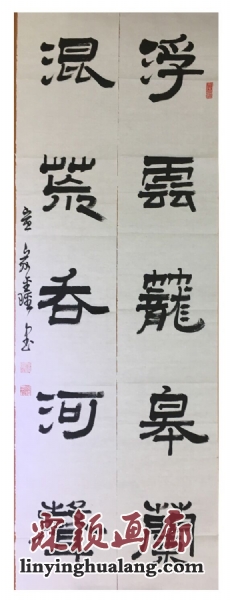 浮雲蘢皋蘭
混荒吞河聲
颖画廊
linyinghualang.com